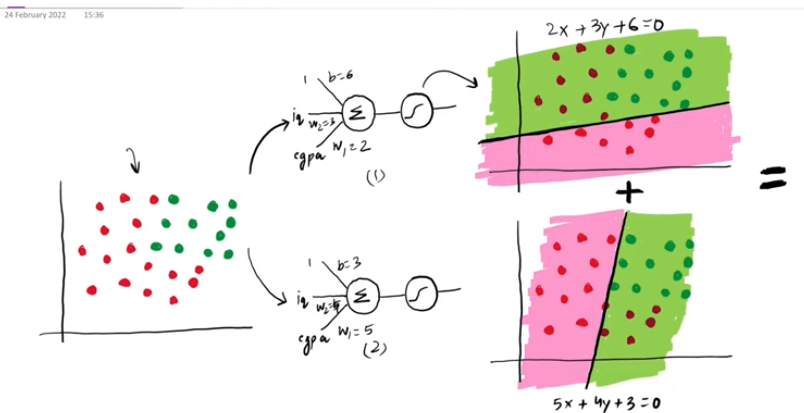 24 February 2022 15:36
2x + 3y + 6 = 0
1 b=6
iq w₂=3
Σ
cgpa w₁=2
(1)
+
=
1 b=3
iq w₂=4
Σ
cgpa w₁=5
(2)
5x + 4y + 3 = 0